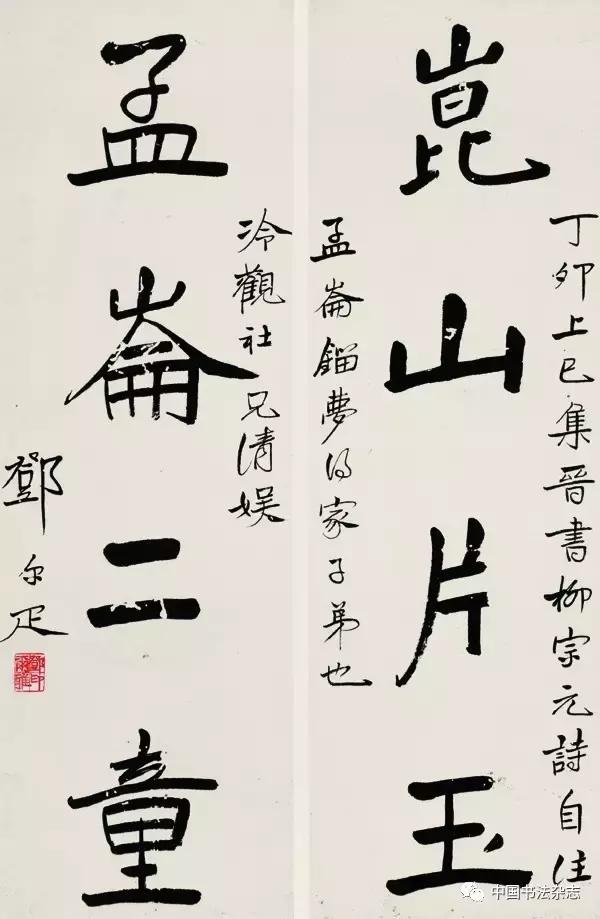 丁卯上巳集晋書柳宗元詩自注
崑山片玉
孟崙鎦夢得家子弟也
泠觀社兄清娱
孟崙二童
鄧尔疋
中国书法杂志